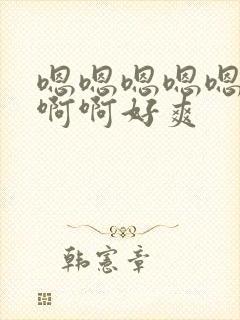 嗯嗯嗯嗯嗯
啊啊好爽
韩宪章